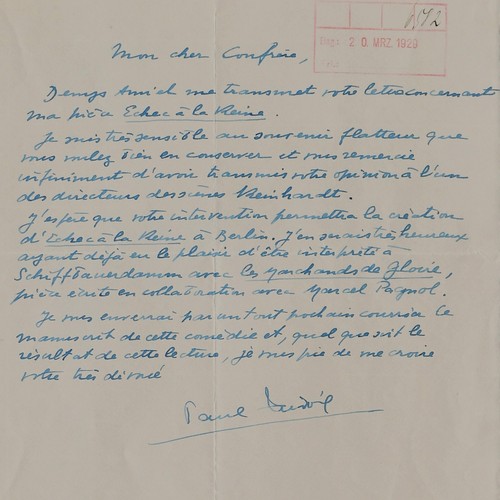 8572
20. MRZ. 1929
Mon cher Confrère,
Denys Amiel me transmet votre lettre concernant
ma pièce Echec à la Reine.
Je suis très sensible au souvenir flatteur que
vous voulez bien en conserver et vous remercie
infiniment d'avoir transmis votre opinion à l'un
des directeurs des scènes Reinhardt.
J'espère que votre intervention permettra la création
d'Echec à la Reine à Berlin. J'en serais très heureux
ayant déjà eu le plaisir d'être interprété à
Schiffbauerdamm avec les Marchands de Gloire,
pièce écrite en collaboration avec Marcel Pagnol.
Je vous enverrai par un tout prochain courrier le
manuscrit de cette comédie et, quel que soit le
résultat de cette lecture, je vous prie de me croire
votre très dévoué
Paul Nivoix